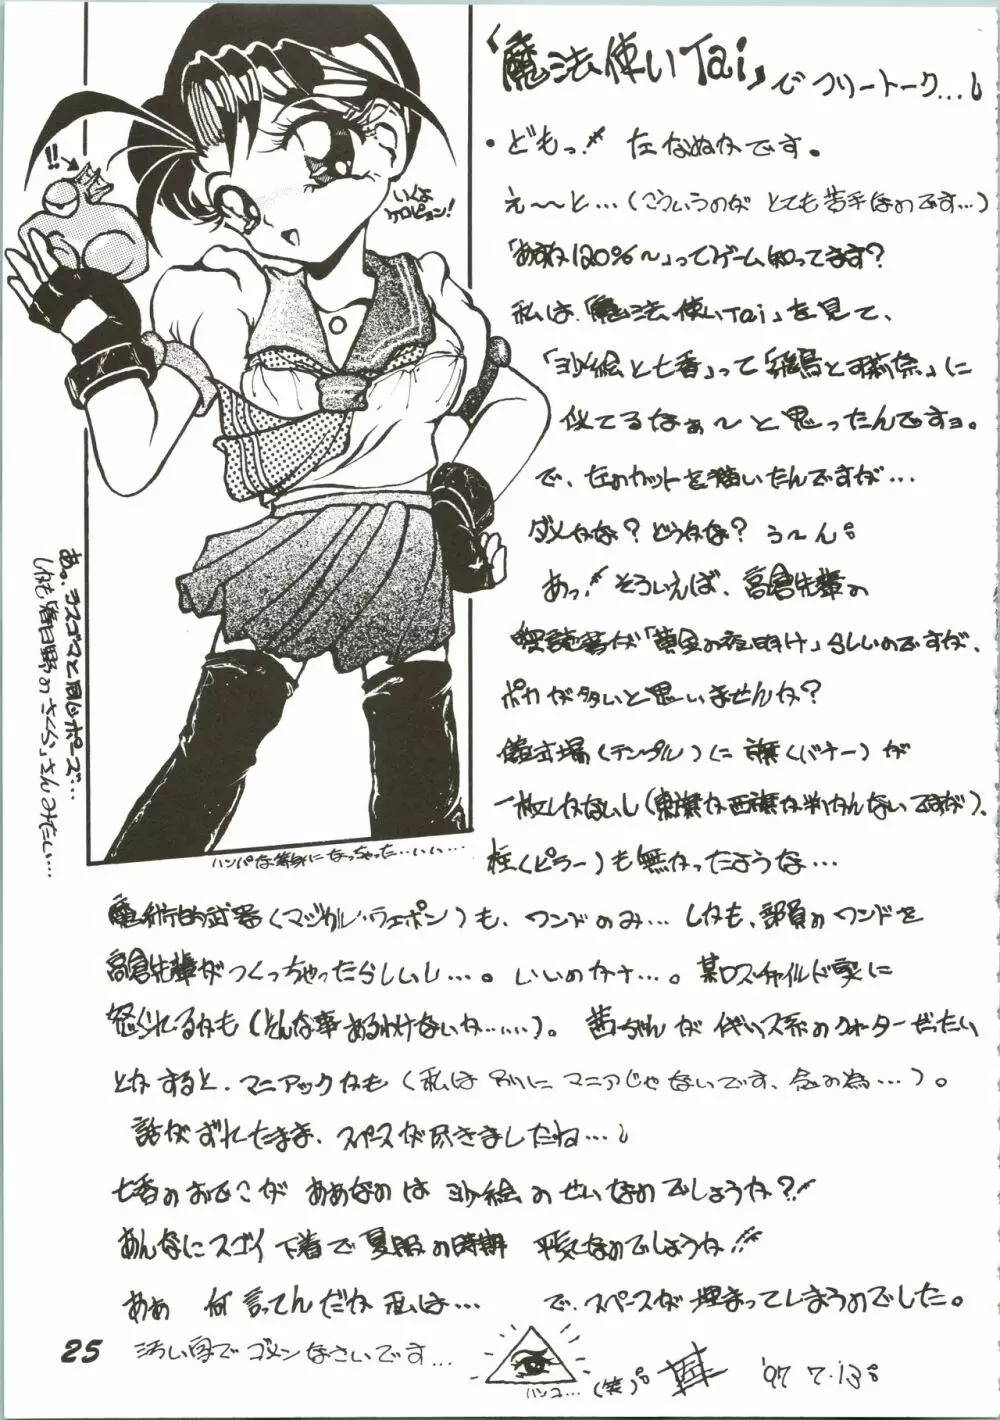 「魔法使いTai」でフリートーク…！
・どもっ!! 左なぬかです。
え〜と…(こういうのが とても苦手なのです…)
「あすか120%〜」ってゲーム知ってます？
私は、「魔法使いTai」を見て、
「沙絵と七香」って「飛鳥と可莉奈」に
似てるなぁ〜と思ったんですョ。
で、左のカットを描いたんですが…
ダメかな？どうかな？う〜ん。
あっ!! そういえば、高倉先輩の
聖説書が「黄金の夜明け」らしいのですが、
ポカが多いと思いませんか？
儀式場(テンプル)に旗(バナー)が
一枚しかないし(東旗か西旗か判かんないですが)、
柱(ピラー)も無かったような…
魔術的武器(マジカル・ウェポン)も、ワンドのみ… しかも、部員のワンドを
高倉先輩がつくっちゃったらしいし…。いいのかナ…。某ロスチャイルド家に
怒られるかも(そんな事あるわけないか……)。茜ちゃんがイギリス系のクォーターだったり
とかすると、マニアックかも(私は別にマニアじゃないです、念の為…)。
話がずれたまま、スペースが尽きましたね…！
七香のおでこが ああなのは沙絵のせいなのでしょうか？!!
あんなにスゴイ下着で夏服の時期 平気なのでしょうか!!
ああ 何言ってんだか私は… で、スペースが埋まってしまうのでした。
汚い字でゴメンなさいです…
ハンコ…
(笑)。
'97 7.13。
25
!!
いくよ
ケロピョン！
あっ、ラスゴマと同じポーズ…
しかも春日野の「さくら」さんみたい…
ハンパな等身になっちゃった…いい…